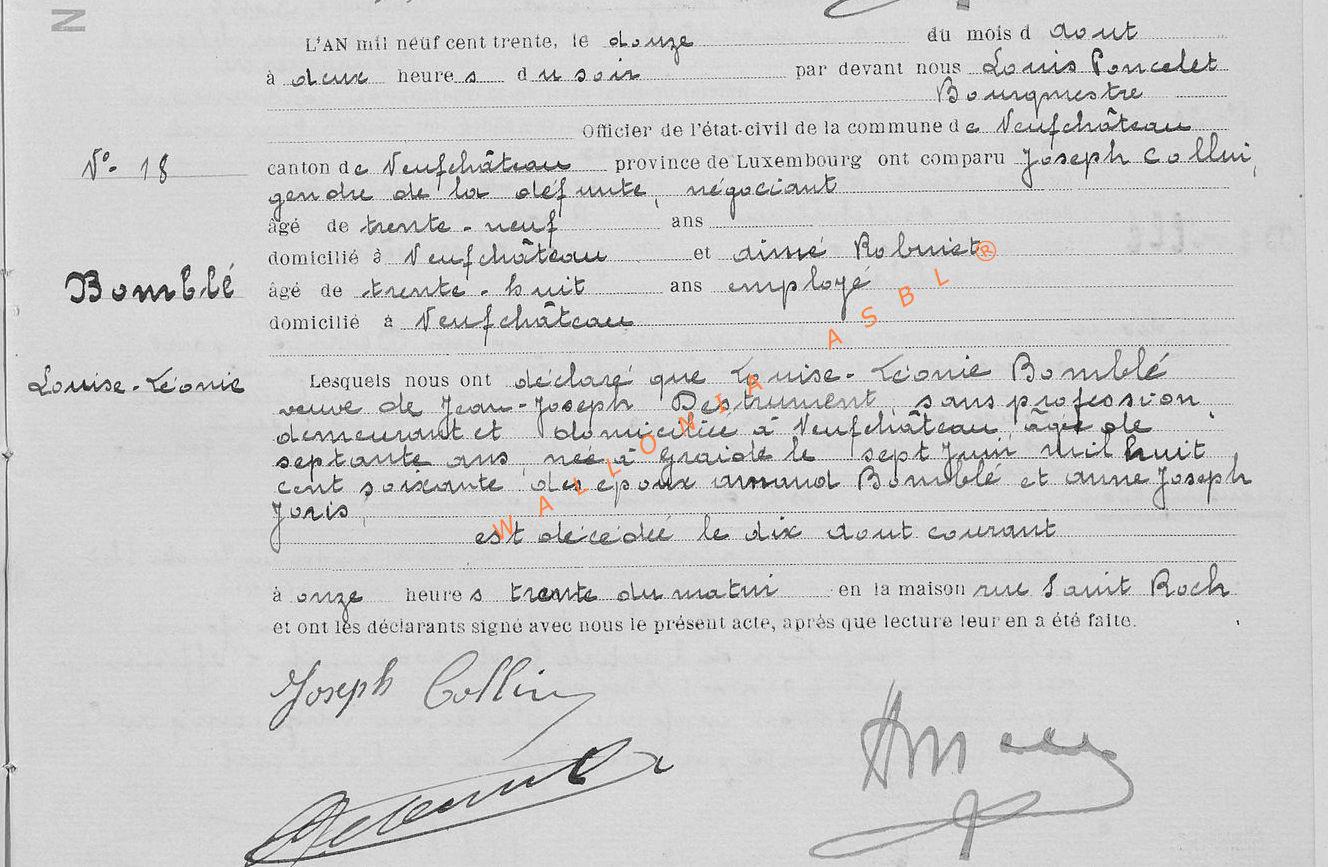 L'AN mil neuf cent trente, le douze du mois d aout
à deux heures du soir par devant nous Louis Poncelet
Bourgmestre
Officier de l'état-civil de la commune de Neufchâteau
N° 18
canton de Neufchâteau province de Luxembourg ont comparu Joseph Collin,
gendre de la défunte, négociant
âgé de trente-neuf ans
domicilié à Neufchâteau et aimé Robinet
Bomblé
âgé de trente-huit ans employé
domicilié à Neufchâteau
Louise-Léonie
Lesquels nous ont déclaré que Louise-Léonie Bomblé
veuve de Jean-Joseph Destrument, sans profession
demeurant et domiciliée à Neufchâteau, âgée de
septante ans, née à Graide le sept Juin mil huit
cent soixante des époux amand Bomblé et anne Joseph
Joris,
est décédée le dix aout courant
à onze heures trente du matin en la maison rue Saint Roch
et ont les déclarants signé avec nous le présent acte, après que lecture leur en a été faite.
Joseph Collin
WALLONIA ASBL ®